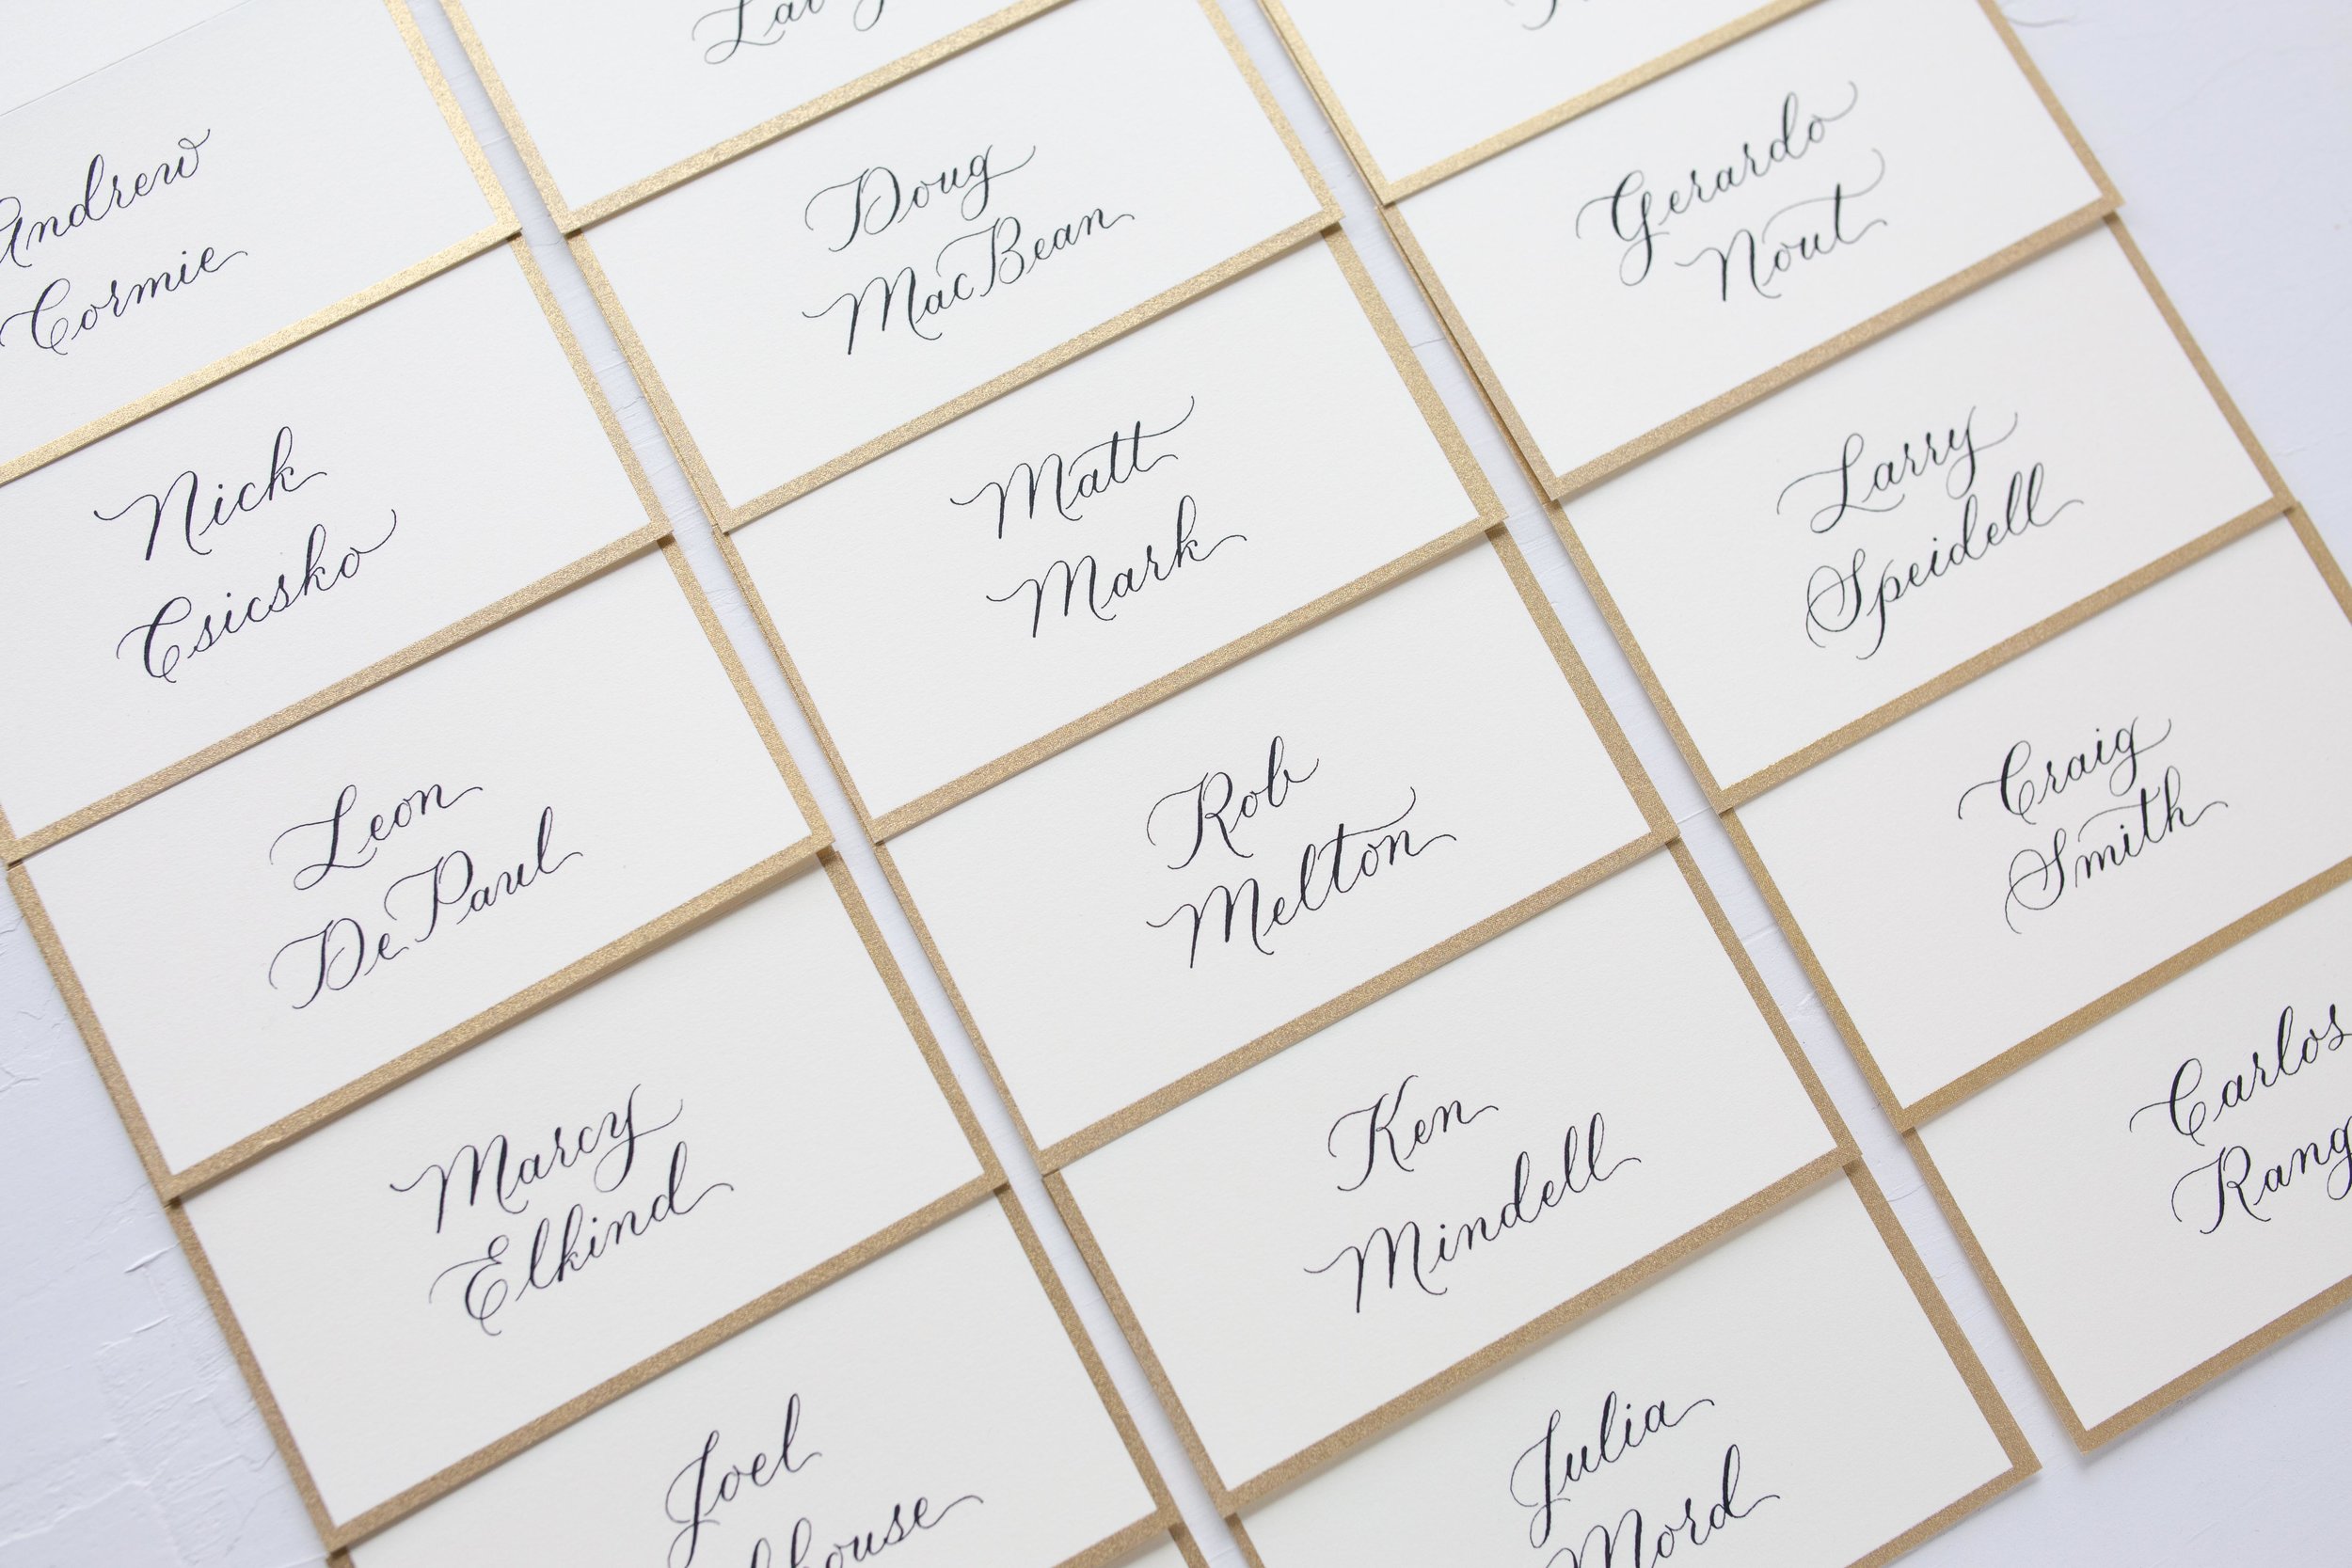 Andrew
Cormie
Nick
Csicsko
Leon
DePaul
Marcy
Elkind
Joel
Doug
MacBean
Matt
Mark
Rob
Melton
Ken
Mindell
Julia
Mord
Gerardo
Nout
Larry
Speidell
Craig
Smith
Carlos